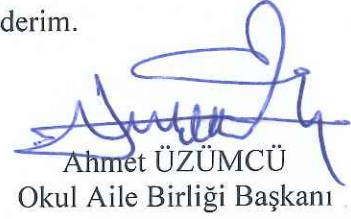 derim.
Ahmet ÜZÜMCÜ
Okul Aile Birliği Başkanı